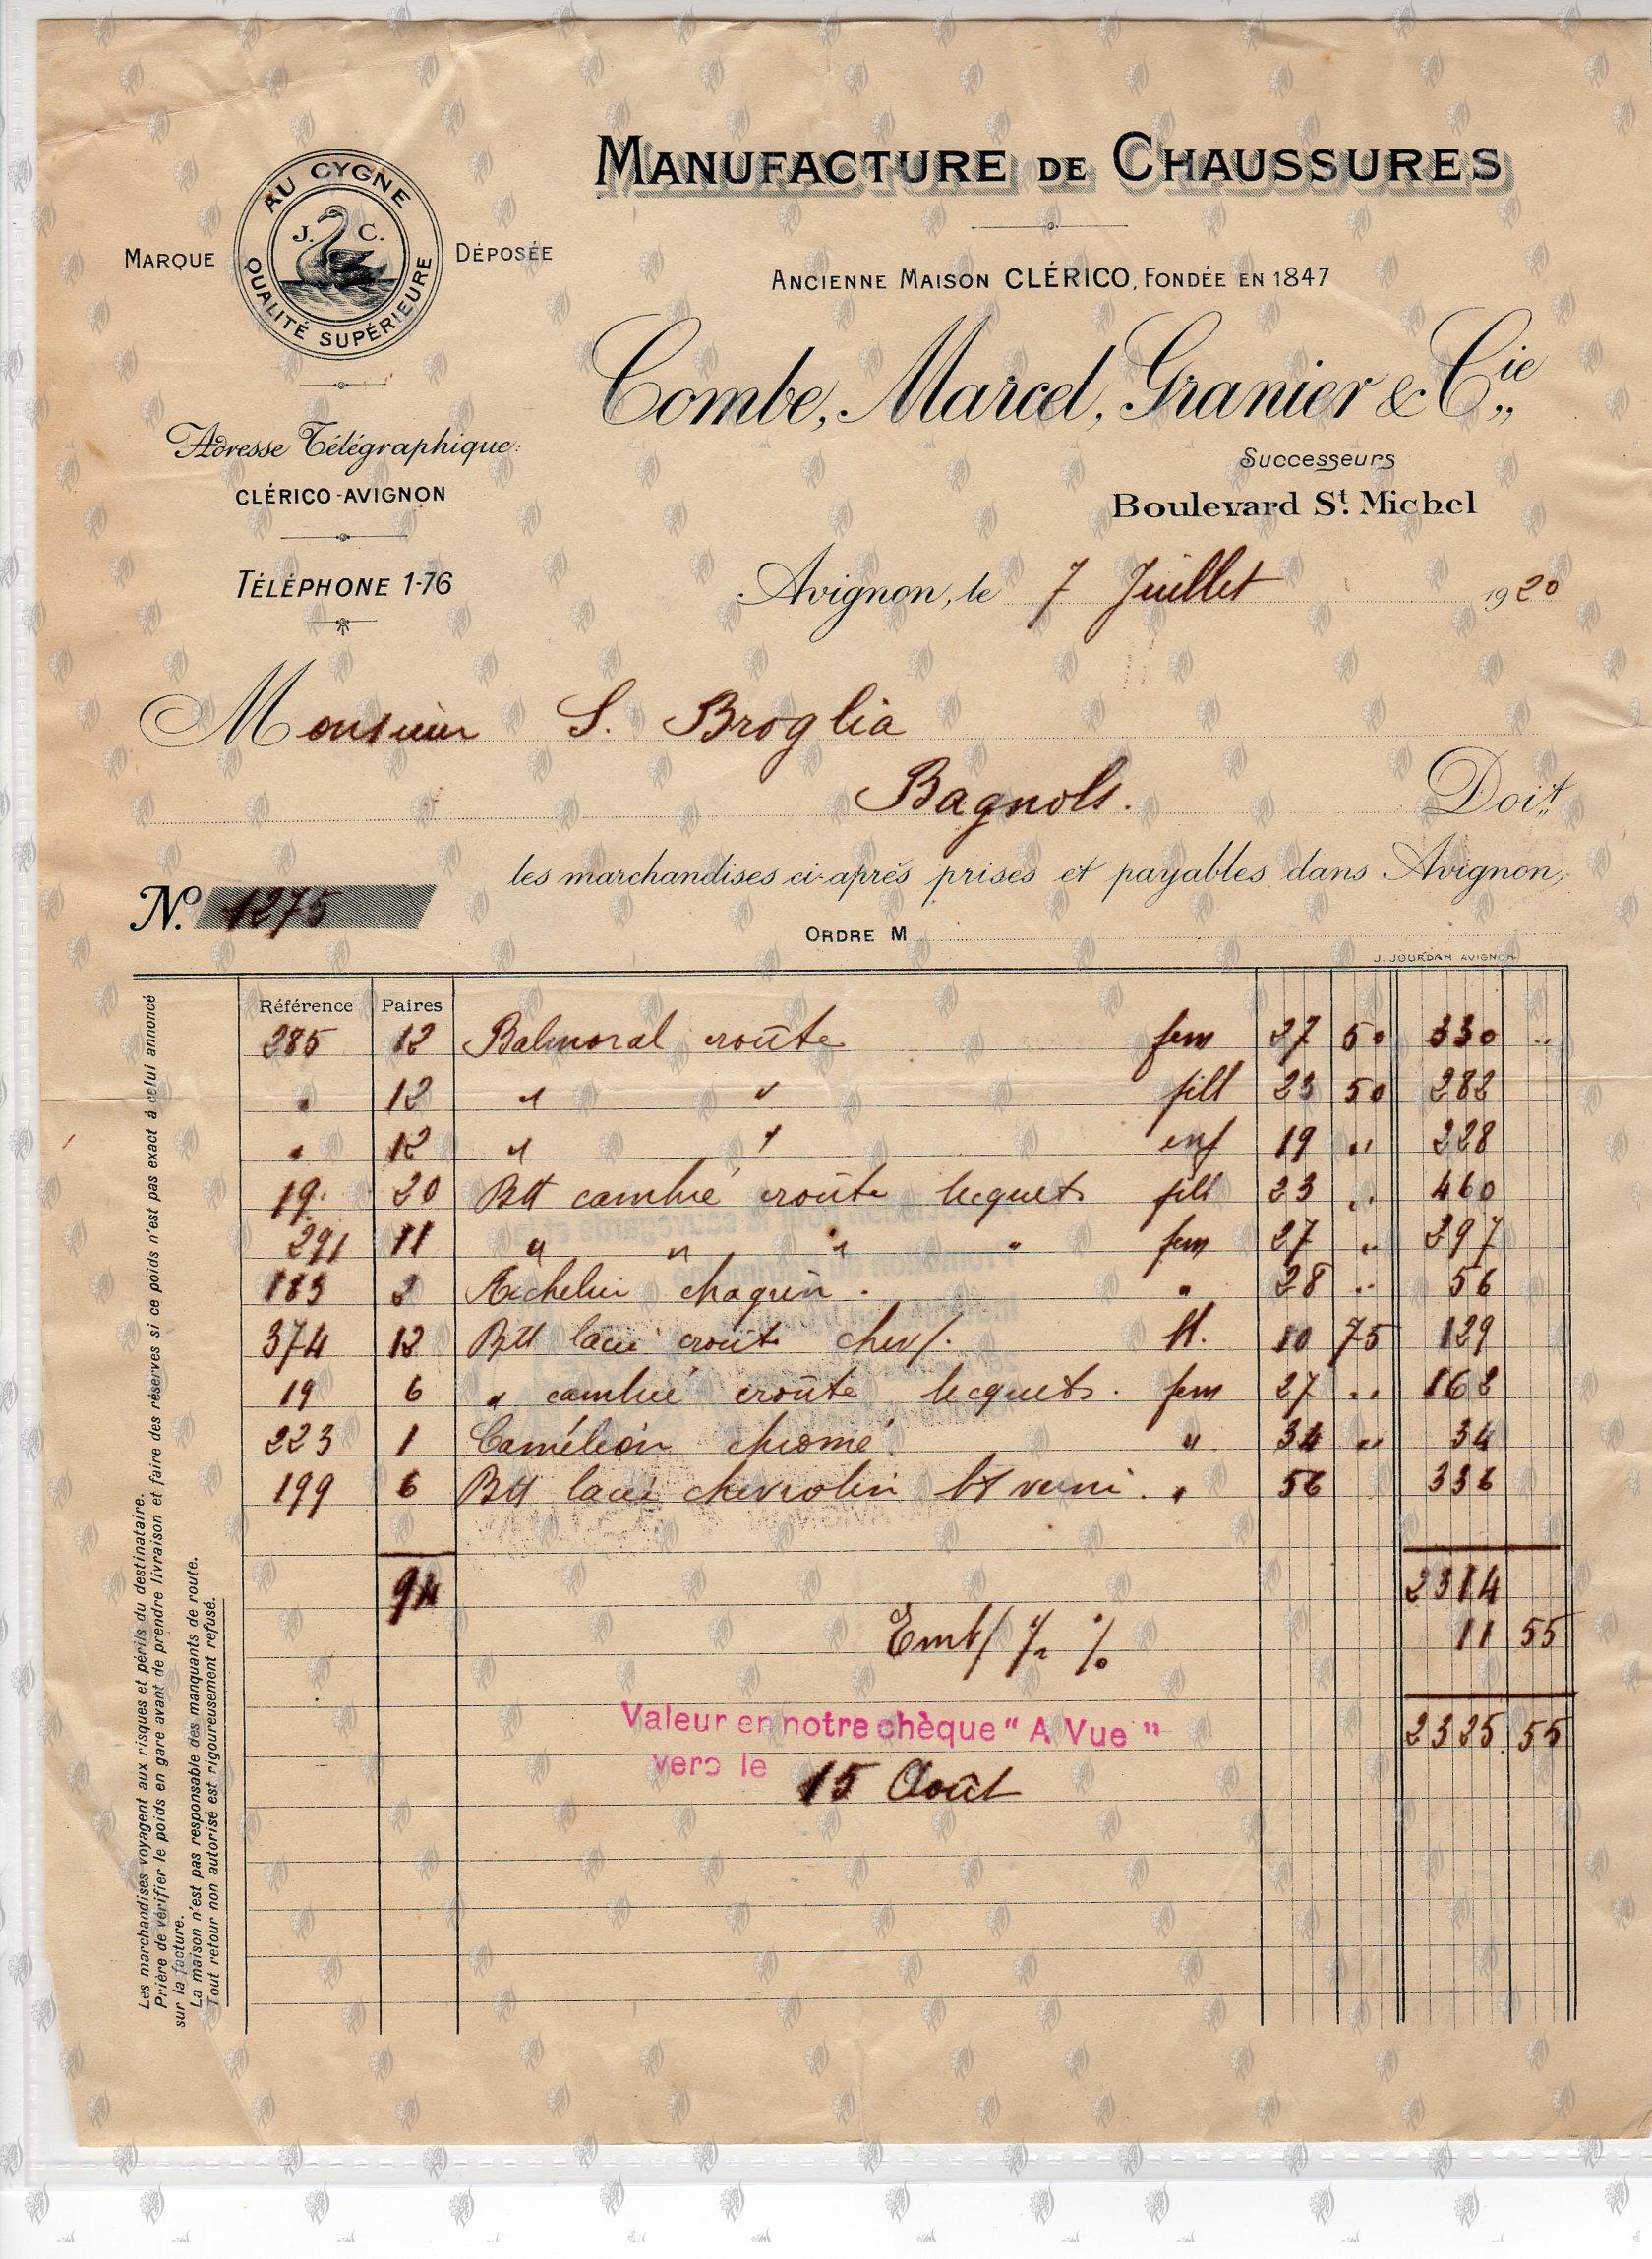 MANUFACTURE DE CHAUSSURES
AU CYGNE
J. C.
QUALITÉ SUPÉRIEURE
MARQUE DÉPOSÉE
ANCIENNE MAISON CLÉRICO, FONDÉE EN 1847
Combe, Marcel, Granier & Cie
Successeurs
Boulevard St. Michel
Adresse Télégraphique:
CLÉRICO-AVIGNON
TÉLÉPHONE 1-76
Avignon, le 7 Juillet 1920
Monsieur S. Broglia
Bagnols. Doit
les marchandises ci-après prises et payables dans Avignon,
No. 1275
ORDRE M
J. JOURDAN AVIGNON
Référence Paires
285 12 Balmoral croûte fem 27 50 330 "
" 12 " " fill 23 50 282
" 12 " " enf 19 " 228
19. 20 Btt cambré croûte becquets fill 23 " 460
291 11 " " " " fem 27 " 297
183 2 Richelieu chagrin. " 28 " 56
374 12 Btt lacé croûte chev/. 10 75 129
19 6 " cambré croûte becquets. fem 27 " 162
223 1 Caméléon chromé " 34 " 34
199 6 Btt lacé chevrolin bt verni. " 56 336
94 2314
Emb/ ½ % 11 55
2325. 55
Valeur en notre chèque "A Vue"
vers le 15 Août
Les marchandises voyagent aux risques et périls du destinataire.
Prière de vérifier le poids en gare avant de prendre livraison et faire des réserves si ce poids n'est pas exact à celui annoncé
sur la facture.
La maison n'est pas responsable des manquants de route.
Tout retour non autorisé est rigoureusement refusé.